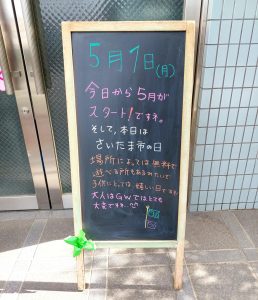 5月1日(月)
今日から5月が
スタート!ですね。
そして、本日は
さいたま市の日
場所によっては無料で
遊べる所もあるみたいで
子供にとっては嬉しい日ですね
大人はGWではとても
大変ですね